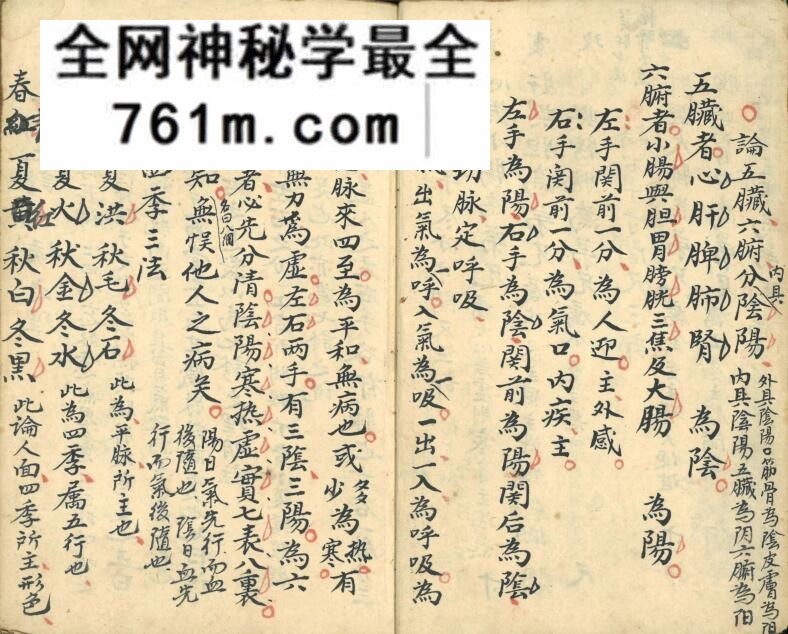 全网神秘学最全
761m.com
論五臟六腑分陰陽
内具
外具陰陽口筋骨為陰皮膚為阳
内具陰陽五臟為阴六腑為阳
五臟者心肝脾肺腎 為陰
六腑者小腸與胆胃膀胱三焦及大腸 為陽
左手関前一分為人迎主外感
右手関前一分為氣口内疾主
左手為陽右手為陰関前為陽関后為陰
脉定呼吸
出氣為呼入氣為吸一出一入為呼吸為
脉來四至為平和無病也或
多為热
少為寒
有
無力為虚左右兩手有三陰三陽為六
者必先分清陰陽寒热虚實七表八裏
名曰八個
知無悮他人之病矣
陽日氣先行而血
後隨也 陰日血先
行而氣後隨也
四季三法
夏洪秋毛冬石 此為平脉所主也
夏火秋金冬水 此為四季属五行也
春 夏 紅 秋白冬黑 此論人面四季所主形色